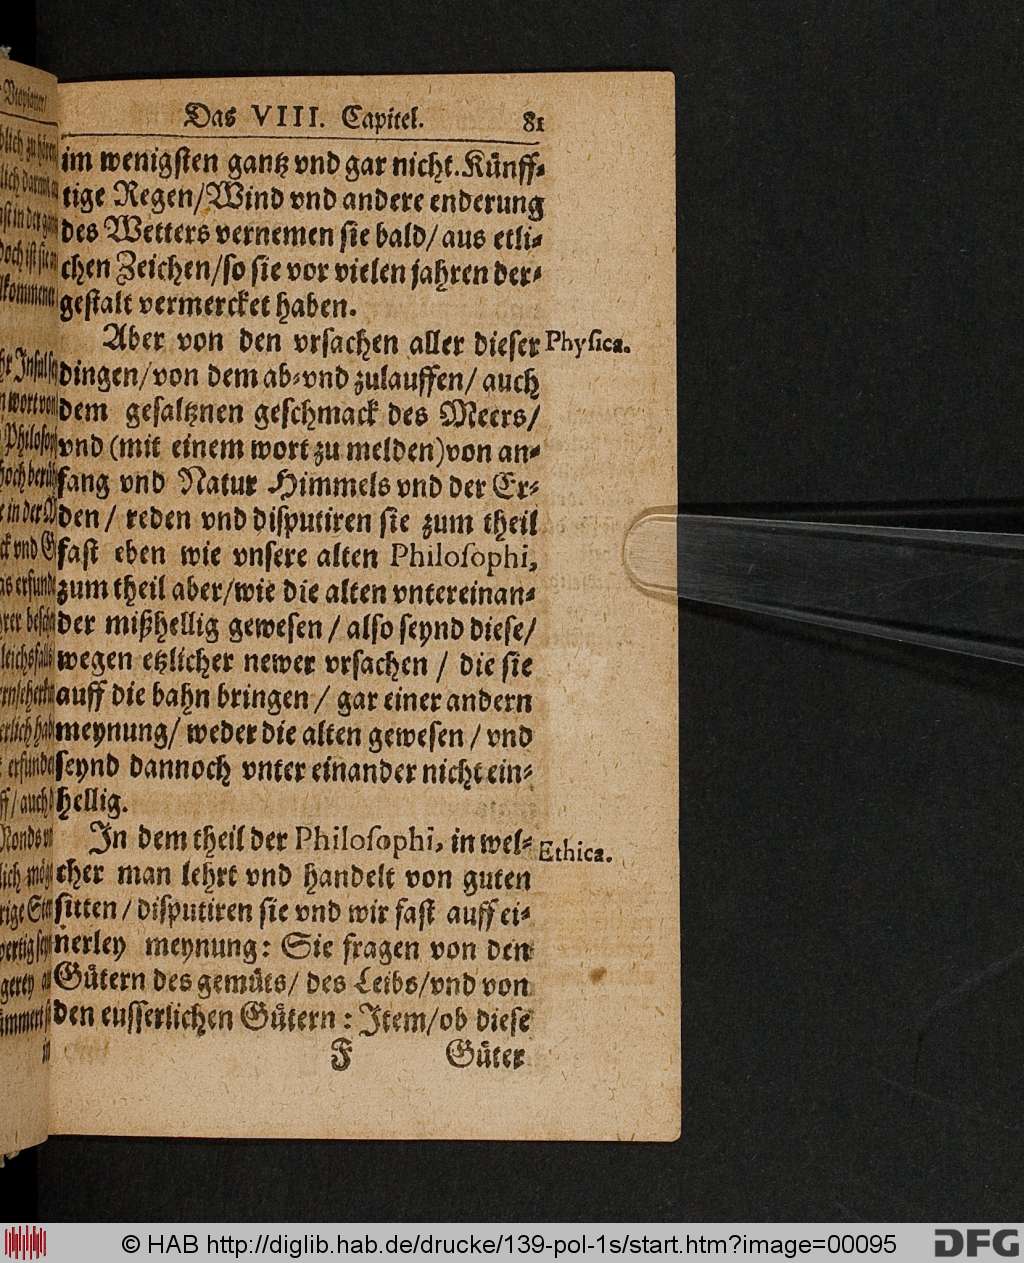 Das VIII. Capitel. 81
im wenigsten gantz vnd gar nicht. Künff-
tige Regen/ Wind vnd andere enderung
des Wetters vernemen sie bald/ aus etli-
chen Zeichen/ so sie vor vielen jahren der-
gestalt vermercket haben.
Aber von den vrsachen aller dieser
Physica.
dingen/ von dem ab- vnd zulauffen/ auch
dem gesaltznen geschmack des Meers/
vnd (mit einem wort zu melden) von an-
fang vnd Natur Himmels vnd der Er-
den/ reden vnd disputiren sie zum theil
fast eben wie vnsere alten Philosophi,
zum theil aber/ wie die alten vntereinan-
der mißhellig gewesen / also seynd diese/
wegen etzlicher newer vrsachen / die sie
auff die bahn bringen / gar einer andern
meynung/ weder die alten gewesen / vnd
seynd dannoch vnter einander nicht ein-
hellig.
In dem theil der Philosophi, in wel-
Ethica.
cher man lehrt vnd handelt von guten
sitten / disputiren sie vnd wir fast auff ei-
nerley meynung: Sie fragen von den
Gütern des gemüts/ des Leibs/ vnd von
den eusserlichen Gütern: Item/ ob diese
F Güter
© HAB http://diglib.hab.de/drucke/139-pol-1s/start.htm?image=00095
DFG